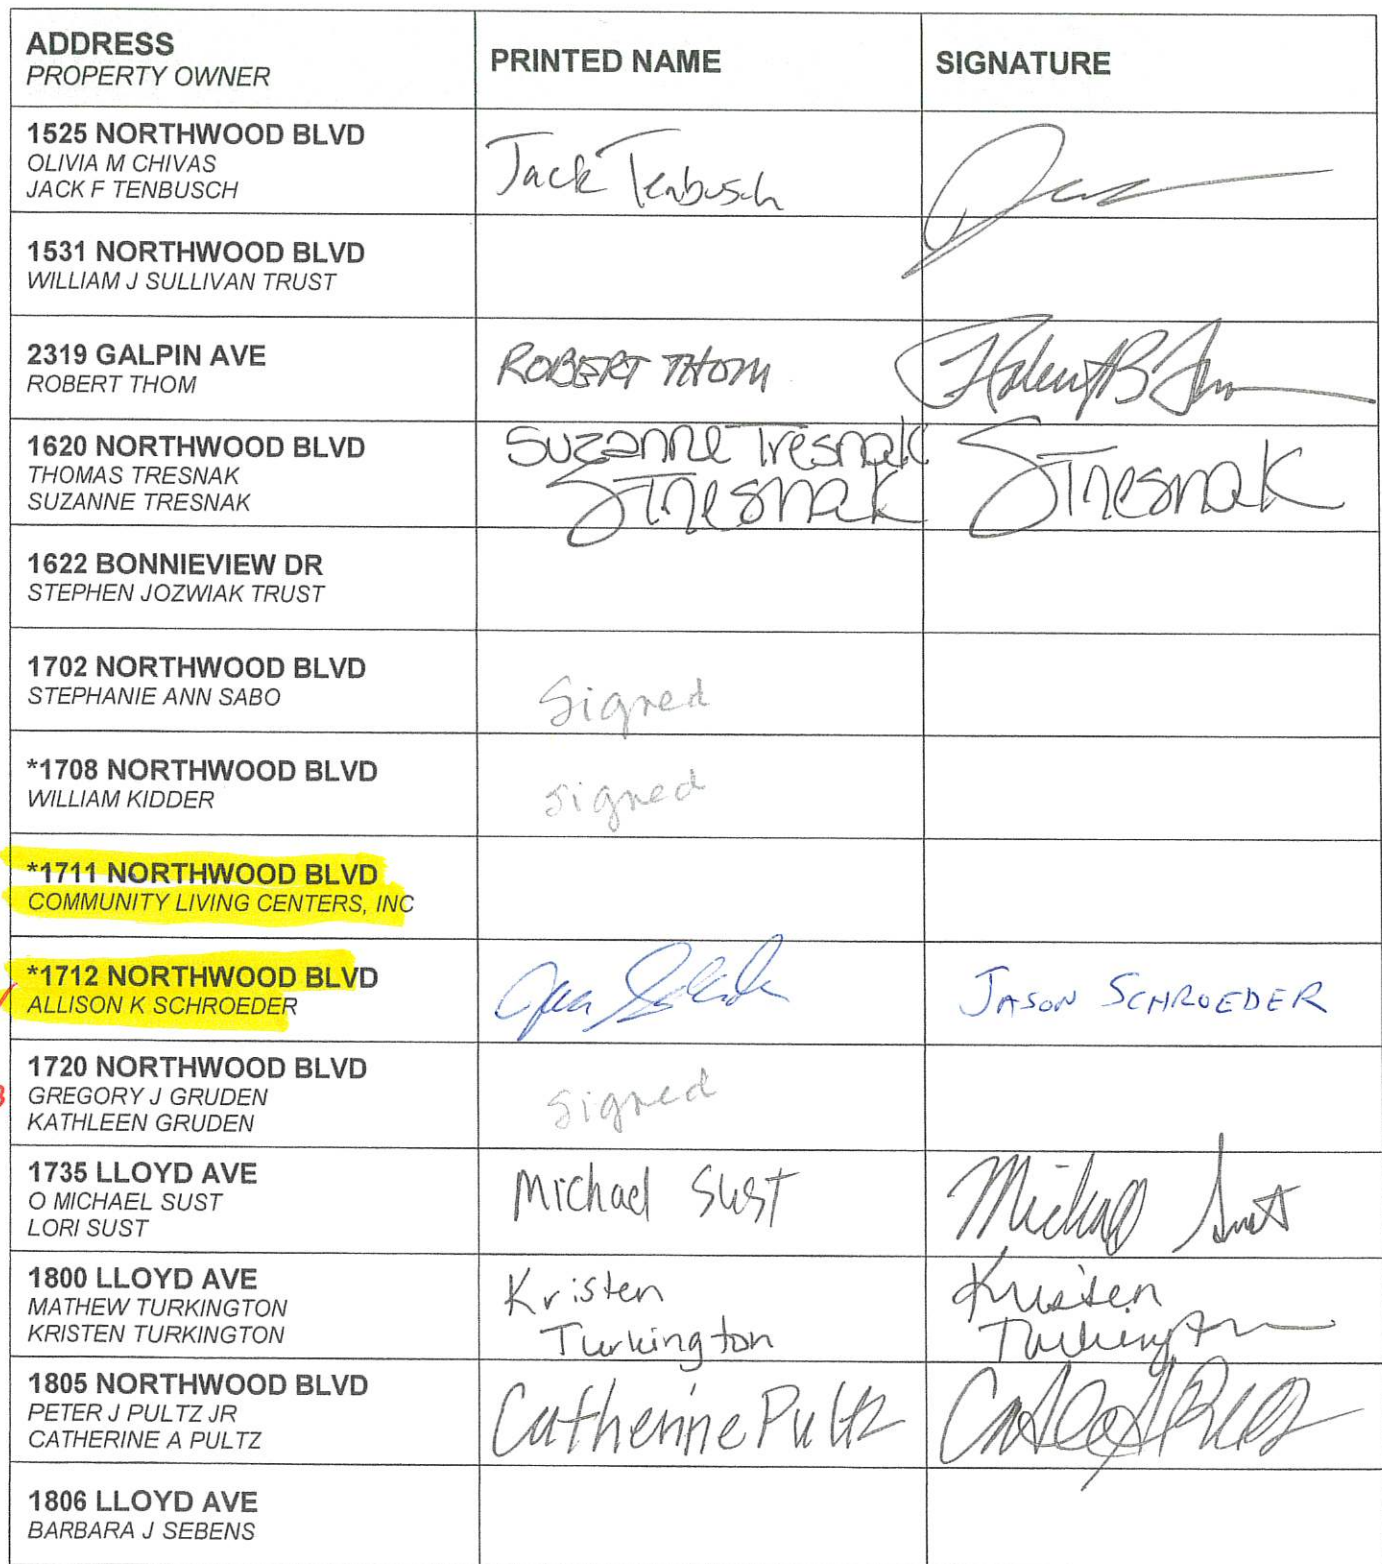 ADDRESS
PROPERTY OWNER
PRINTED NAME
SIGNATURE
1525 NORTHWOOD BLVD
OLIVIA M CHIVAS
JACK F TENBUSCH
Jack Tenbusch
1531 NORTHWOOD BLVD
WILLIAM J SULLIVAN TRUST
2319 GALPIN AVE
ROBERT THOM
ROBERT THOM
1620 NORTHWOOD BLVD
THOMAS TRESNAK
SUZANNE TRESNAK
Suzanne Tresnak
STresnak
STresnak
1622 BONNIEVIEW DR
STEPHEN JOZWIAK TRUST
1702 NORTHWOOD BLVD
STEPHANIE ANN SABO
Signed
*1708 NORTHWOOD BLVD
WILLIAM KIDDER
signed
*1711 NORTHWOOD BLVD
COMMUNITY LIVING CENTERS, INC
*1712 NORTHWOOD BLVD
ALLISON K SCHROEDER
JASON SCHROEDER
1720 NORTHWOOD BLVD
GREGORY J GRUDEN
KATHLEEN GRUDEN
signed
1735 LLOYD AVE
O MICHAEL SUST
LORI SUST
Michael Sust
Michael Sust
1800 LLOYD AVE
MATHEW TURKINGTON
KRISTEN TURKINGTON
Kristen
Turkington
Kristen
Turkington
1805 NORTHWOOD BLVD
PETER J PULTZ JR
CATHERINE A PULTZ
Catherine Pultz
1806 LLOYD AVE
BARBARA J SEBENS